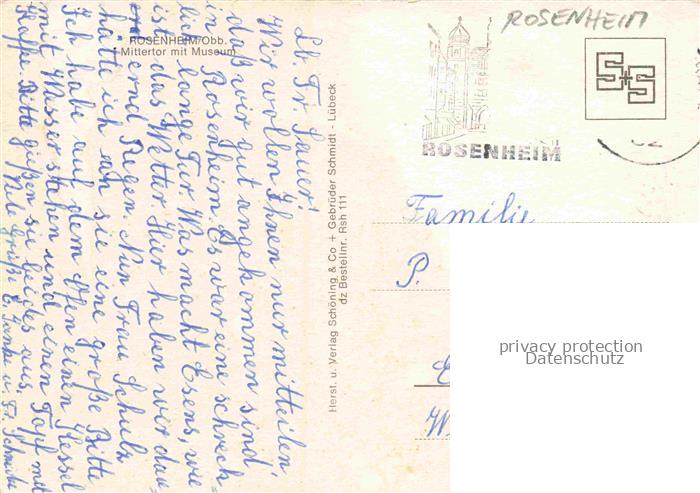 ROSENHEIM
ROSENHEIM/Obb.
Mittertor mit Museum
S+S
ROSENHEIM
Lb Fr Sauer!
Wir wollen Ihnen nur mitteilen,
daß wir gut angekommen sind
in Rosenheim. Es war eine schreck=
lich lange Tur. Was macht Esens, wie
ist das Wetter Hier haben wir dau=
ernd Regen. Nun Frau Schulz
hätte ich an sie eine große Bitte
Ich habe auf dem Ofen einen Kessel
mit Wasser stehen und einen Topf mit
Kaffe. Bitte gießen sie beides aus.
Viele Grüße E. u. Fr.
Herst. u. Verlag Schöning & Co + Gebrüder Schmidt - Lübeck
dz Bestellnr. Rsh 111
Familie
P.
privacy protection
Datenschutz